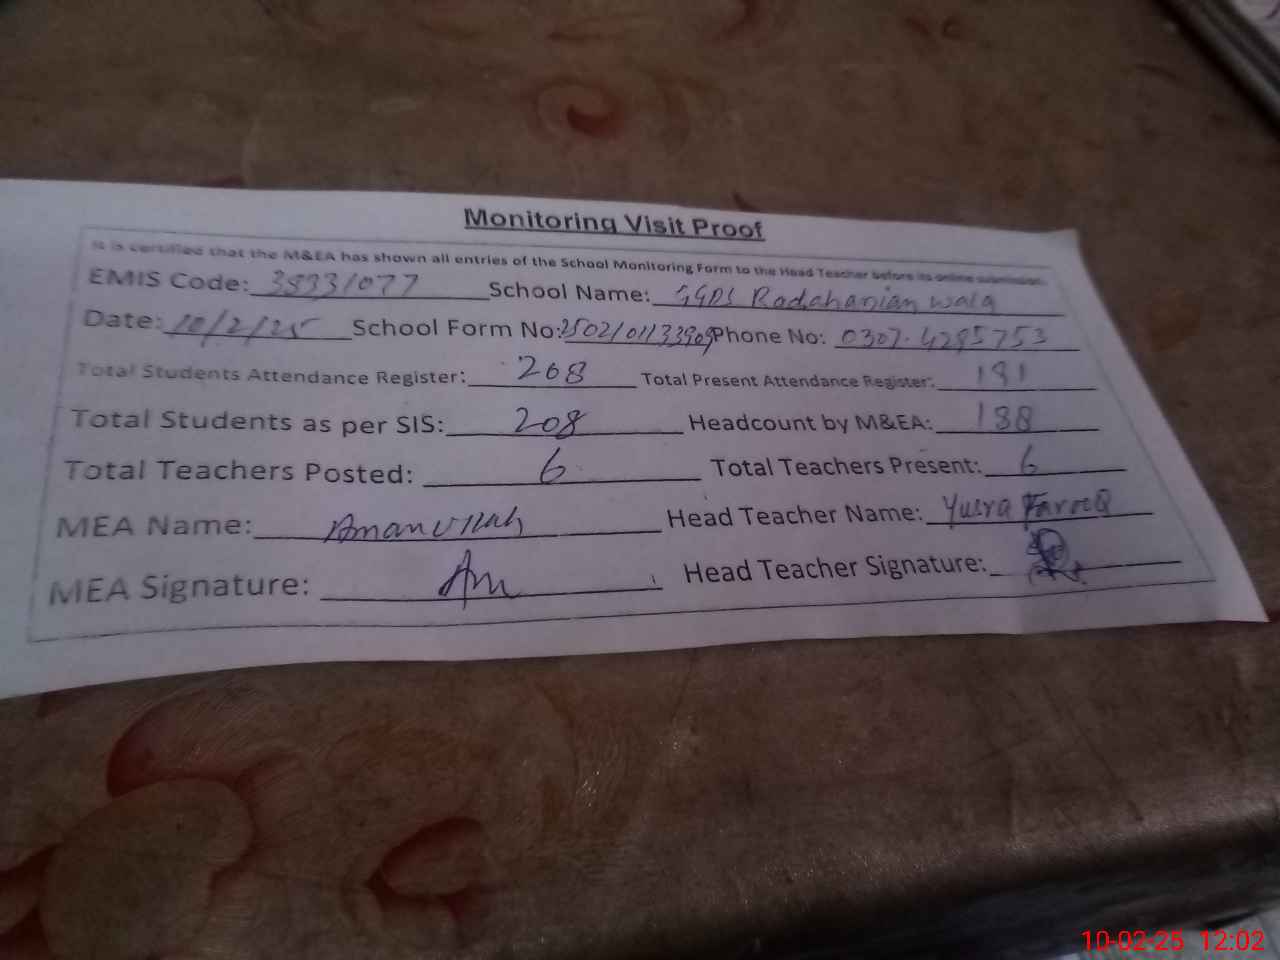 Monitoring Visit Proof
It is certified that the M&EA has shown all entries of the School Monitoring Form to the Head Teacher before its online submission.
EMIS Code: 38331077 School Name: GGPS Radahanian wala
Date: 10/2/25 School Form No: 2502101133909 Phone No: 0307-4295753
Total Students Attendance Register: 208 Total Present Attendance Register: 191
Total Students as per SIS: 208 Headcount by M&EA: 138
Total Teachers Posted: 6 Total Teachers Present: 6
MEA Name: Amanullah Head Teacher Name: Yusra Farooq
MEA Signature: Am Head Teacher Signature:
10-02-25 12:02